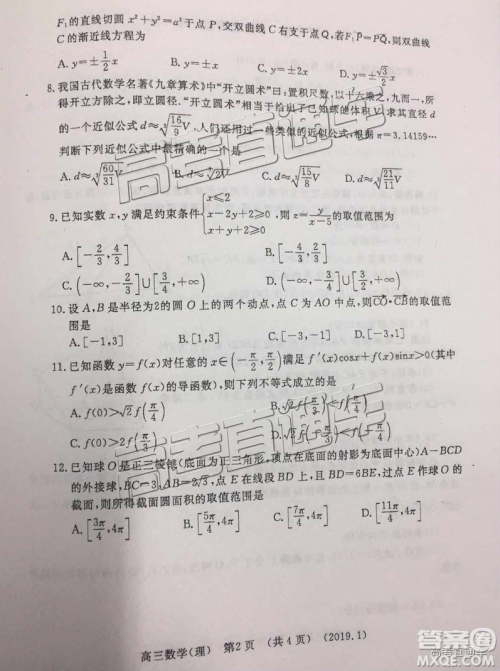 F₁的直线切圆 x²+y²=a² 于点 P,交双曲线 C 右支于点 Q,若F₁P=PQ,则双曲线
C 的渐近线方程为
A. y=±1/2x B. y=±x C. y=±2x D. y=±√3/2x
8. 我国古代数学名著《九章算术》中“开立圆术”曰:置积尺数,以十六乘之,九而一,所
得开立方除之,即立圆径.“开立圆术”相当于给出了已知球的体积V,求其直径d
的一个近似公式d≈∛(16/9 V),人们还用过一些类似的近似公式,根据π=3.14159…
判断下列近似公式中最精确的一个是
A. d≈∛(60/31 V) B. d≈∛(2V) C. d≈∛(15/8 V) D. d≈∛(21/11 V)
9. 已知实数 x,y 满足约束条件{x≤2 x-2y+2≥0 x+y+2≥0,则 z=y/(x-5)的取值范围为
A. [-2/3,4/3] B. [-4/3,2/3]
C. (-∞,-2/3]∪[3/4,+∞) D. (-∞,-3/2]∪[3/4,+∞)
10. 设 A,B 是半径为2的圆 O 上的两个动点,点 C 为 AO 中点,则CO·CB的取值范
围是
A. [-1,3] B. [1,3] C. [-3,-1] D. [-3,1]
11. 已知函数 y=f(x) 对任意的 x∈(-π/2,π/2)满足 f′(x)cosx+f(x)sinx>0(其中
f′(x)是函数 f(x)的导函数),则下列不等式成立的是
A. f(0)>√2f(π/4) B. √2f(π/3)<f(π/4)
C. f(0)>2f(π/3)
12. 已知球 O 是正三棱锥(底面为正三角形,顶点在底面的射影为底面中心)A-BCD
的外接球,BC=3,AB=2√3,点 E 在线段 BD 上,且 BD=6BE,过点 E 作球 O 的
截面,则所得截面圆面积的取值范围是
A. [3π/4,4π] B. [5π/4,4π] C. [7π/4,4π] D. [11π/4,4π]
高三数学(理) 第2页 (共4页) (2019.1)
高考直通车